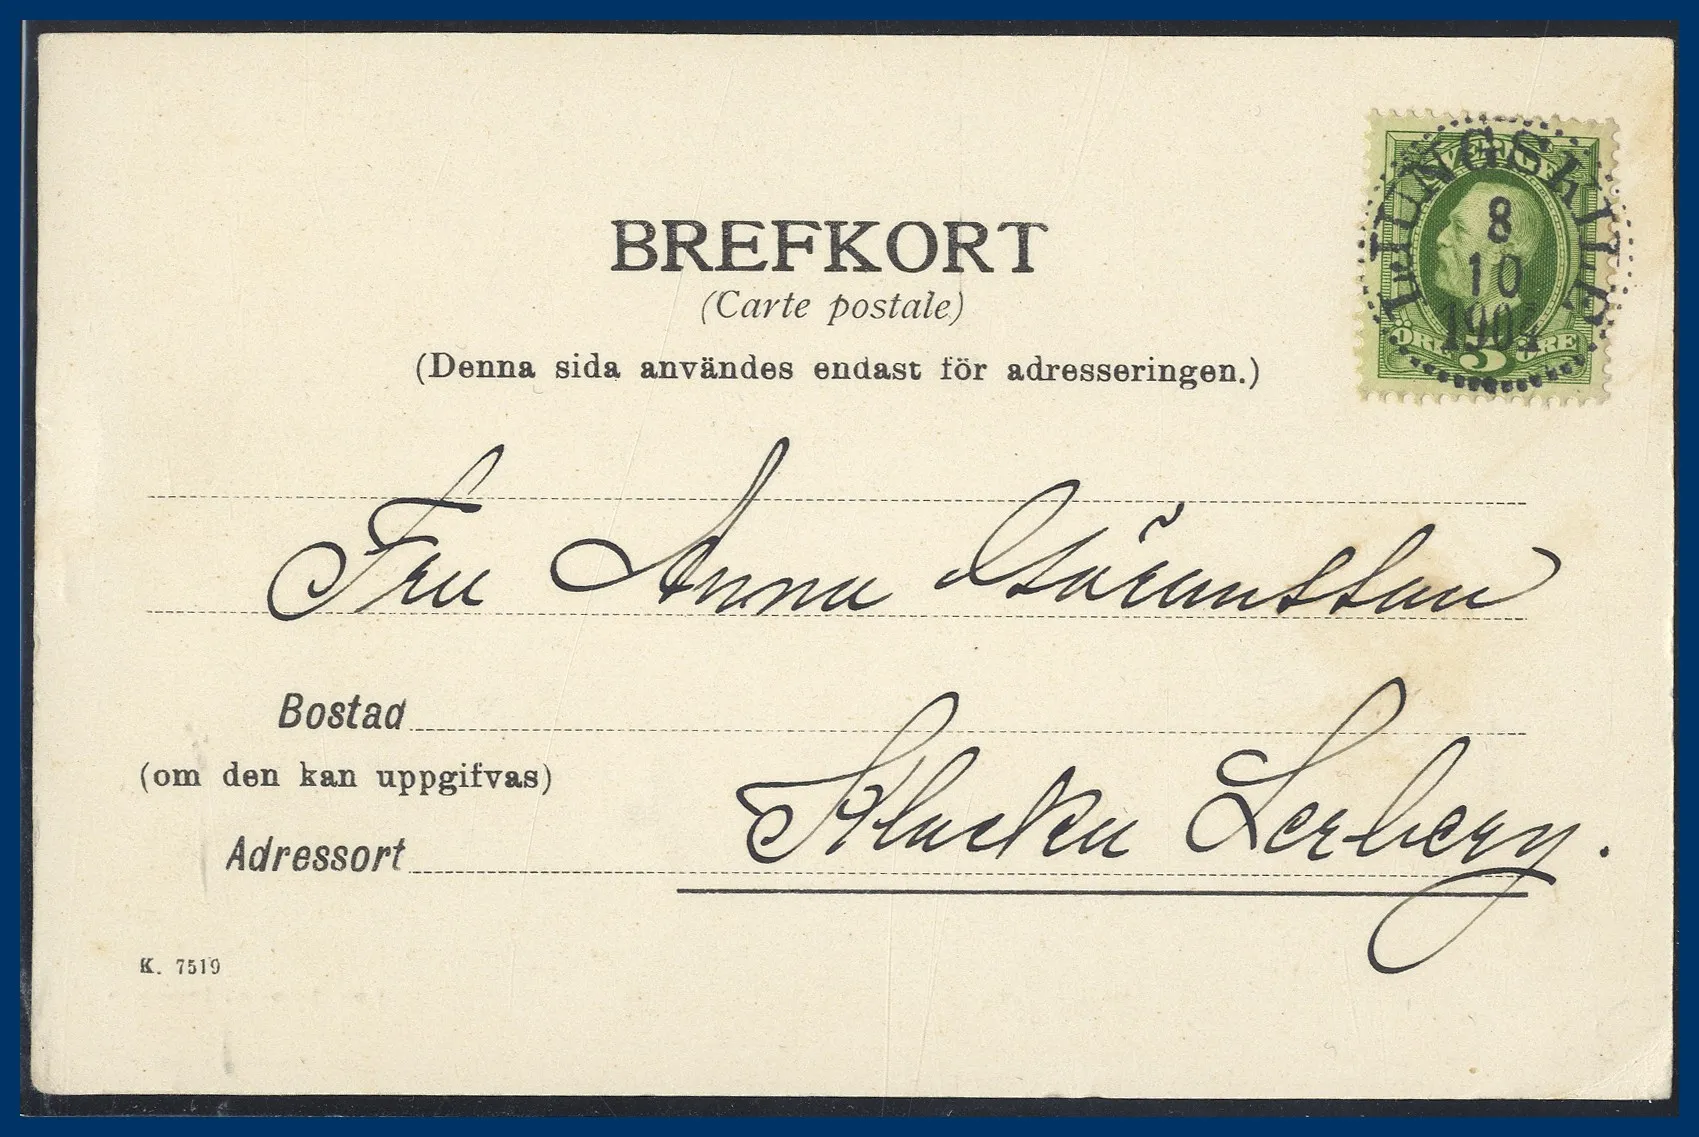 BREFKORT
(Carte postale)
(Denna sida användes endast för adresseringen.)
SVERIGE
LJUNGSKILE
8
10
1904
ÖRE 5 ÖRE
Fru Anna Göransson
Bostad
(om den kan uppgifvas)
Adressort Klocka Lerberg.
K. 7519